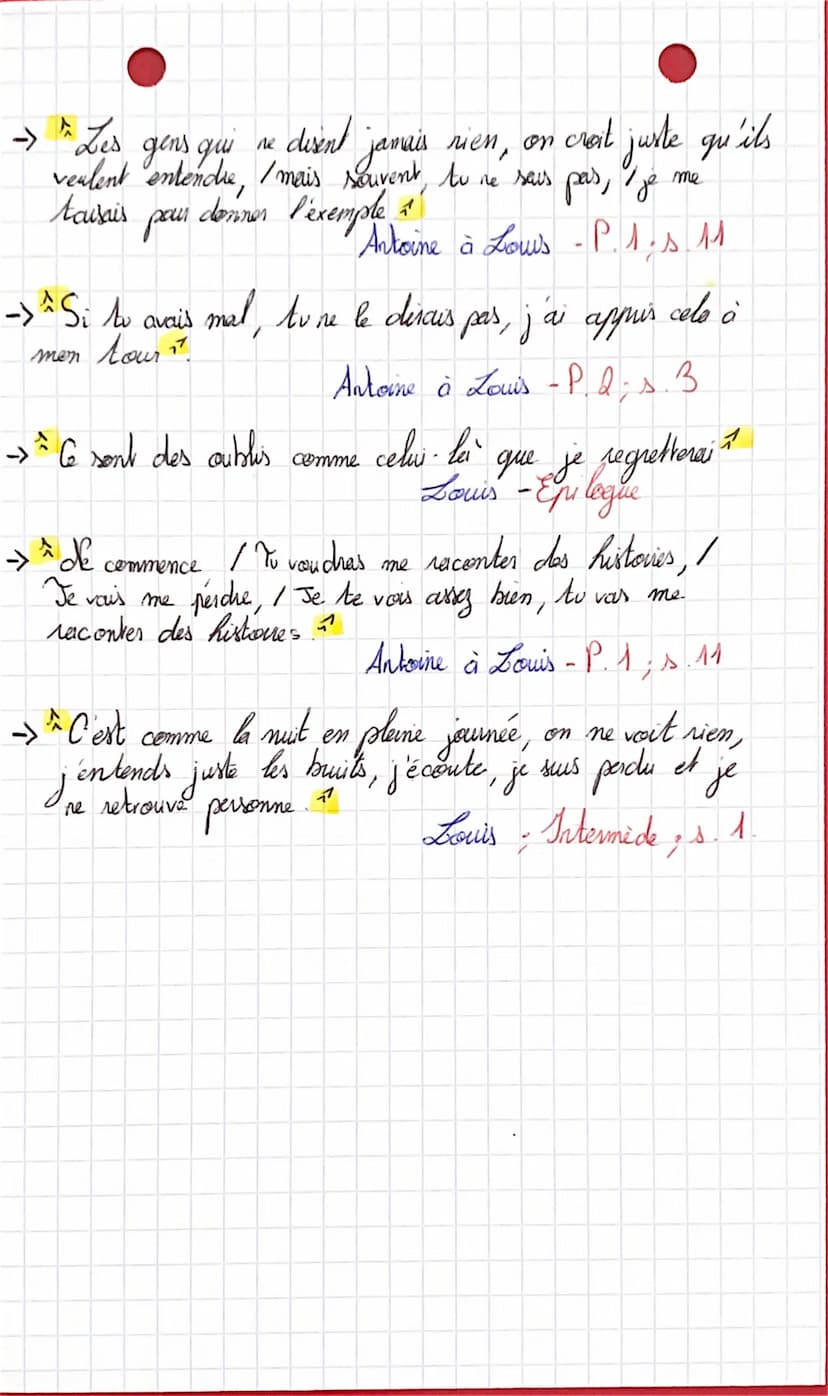 → « Les gens qui ne disent jamais rien, on croit juste qu'ils
veulent entendre, / mais souvent, tu ne sais pas, / je me
taisais pour donner l'exemple »
Antoine à Louis - P. 1 ; s. 11
→ « Si tu avais mal, tu ne le dirais pas, j'ai appris cela à
mon tour ».
Antoine à Louis - P. 2 ; s. 3
→ « Ce sont des oublis comme celui-là que je regretterai »
Louis - Epilogue
→ « Ne commence / Tu voudras me raconter des histoires, /
Je vais me perdre, / Je te vois assez bien, tu vas me
raconter des histoires »
Antoine à Louis - P. 1 ; s. 11
→ « C'est comme la nuit en pleine journée, on ne voit rien,
j'entends juste les bruits, j'écoute, je suis perdu et je
ne retrouve personne. »
Louis ; Intermède ; s. 1.